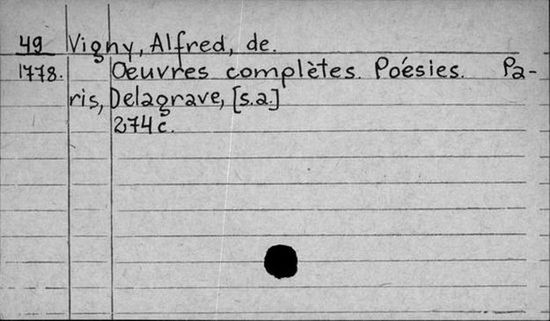 49 Vighy, Alfred, de.
1778. Oeuvres complètes. Poésies. Pa-
ris, Delagrave, [s.a.]
274 c.